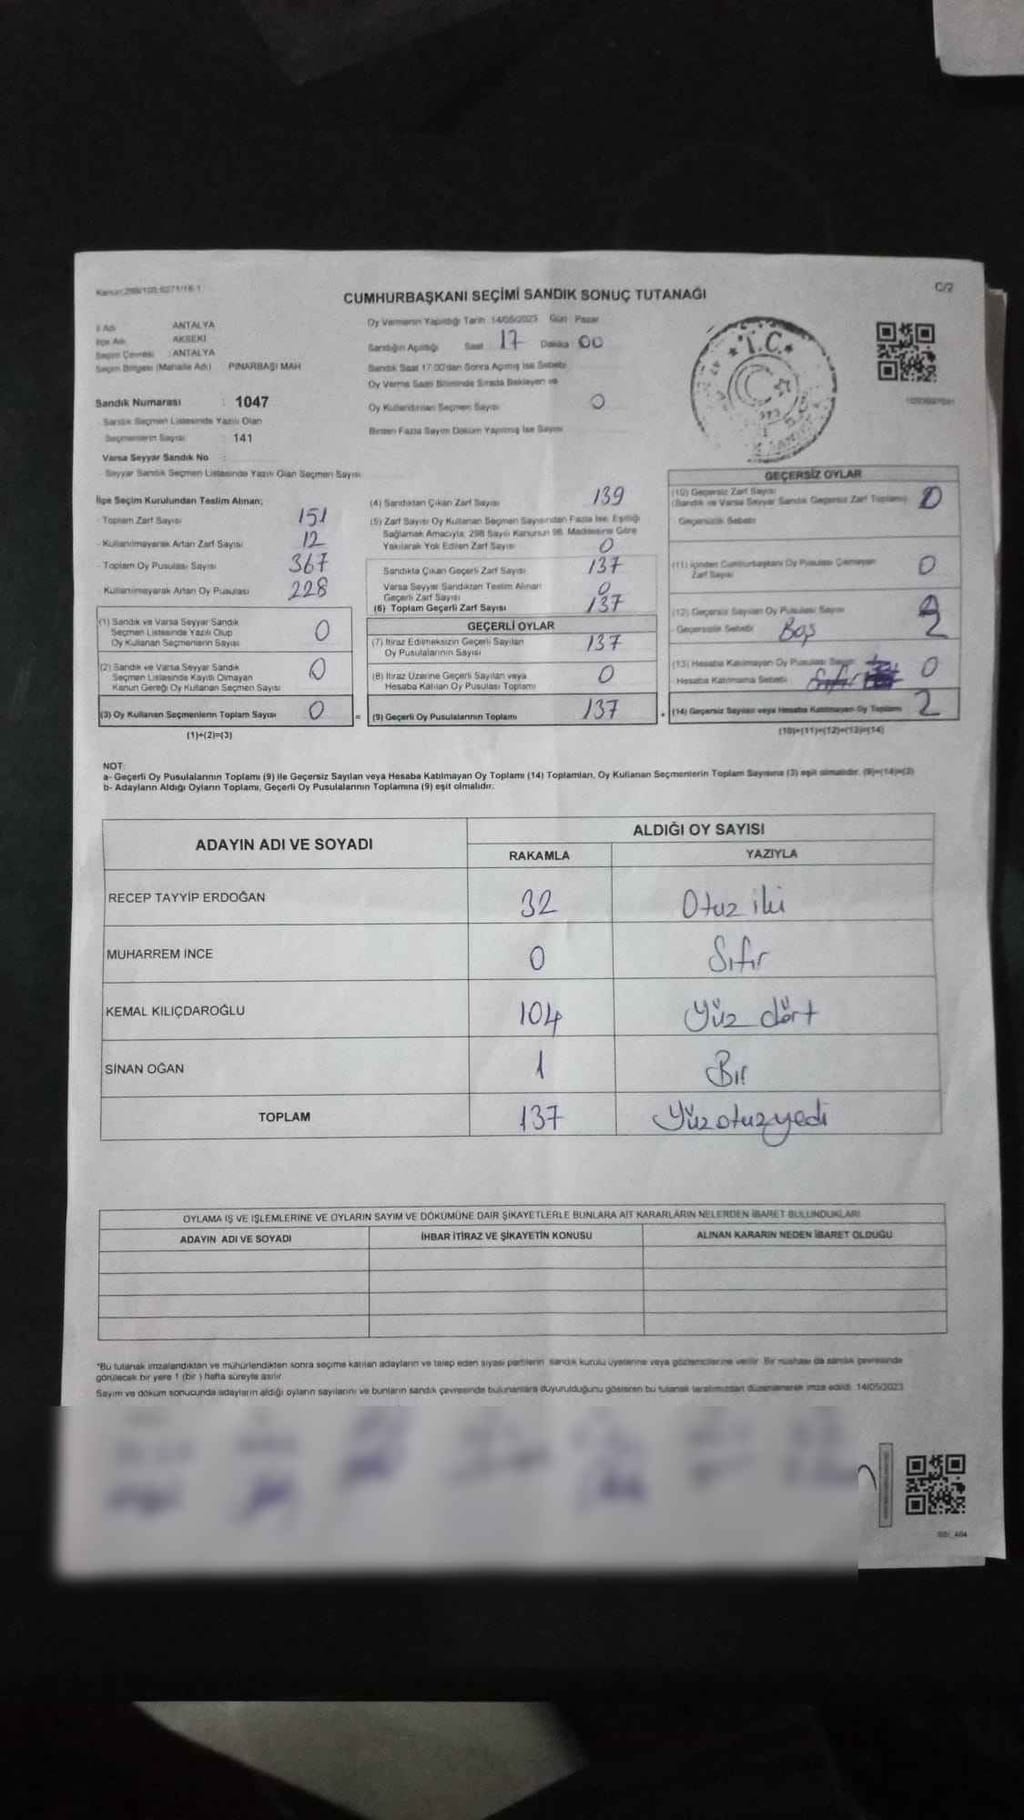 CUMHURBAŞKANI SEÇİMİ SANDIK SONUÇ TUTANAĞI
C/2
İl Adı ANTALYA
İlçe Adı AKSEKİ
Seçim Çevresi : ANTALYA
Seçim Bölgesi (Mahalle Adı) PINARBAŞI MAH
Sandık Numarası : 1047
Sandık Seçmen Listesinde Yazılı Olan
Seçmenlerin Sayısı : 141
Varsa Seyyar Sandık No :
Seyyar Sandık Seçmen Listesinde Yazılı Olan Seçmen Sayısı
Oy Vermenin Yapıldığı Tarih 14/05/2023 Gün Pazar
Sandığın Açıldığı Saat 17 Dakika 00
Sandık Saat 17:00'dan Sonra Açılmış İse Sebebi
Oy Verme Saati Bitiminde Sırada Bekleyen ve
Oy Kullandırılan Seçmen Sayısı 0
Birden Fazla Sayım Döküm Yapılmış İse Sayısı
T.C.
İlçe Seçim Kurulundan Teslim Alınan;
Toplam Zarf Sayısı 151
Kullanılmayarak Artan Zarf Sayısı 12
Toplam Oy Pusulası Sayısı 367
Kullanılmayarak Artan Oy Pusulası 228
(1) Sandık ve Varsa Seyyar Sandık
Seçmen Listesinde Yazılı Olup
Oy Kullanan Seçmenlerin Sayısı 0
(2) Sandık ve Varsa Seyyar Sandık
Seçmen Listesinde Kayıtlı Olmayan
Kanun Gereği Oy Kullanan Seçmen Sayısı 0
(3) Oy Kullanan Seçmenlerin Toplam Sayısı 0
(1)+(2)=(3)
(4) Sandıktan Çıkan Zarf Sayısı 139
(5) Zarf Sayısı Oy Kullanan Seçmen Sayısından Fazla İse, Eşitliği
Sağlamak Amacıyla, 298 Sayılı Kanunun 98. Maddesine Göre
Yakılarak Yok Edilen Zarf Sayısı 0
Sandıkta Çıkan Geçerli Zarf Sayısı 137
Varsa Seyyar Sandıktan Teslim Alınan
Geçerli Zarf Sayısı 0
(6) Toplam Geçerli Zarf Sayısı 137
GEÇERLİ OYLAR
(7) İtiraz Edilmeksizin Geçerli Sayılan
Oy Pusulalarının Sayısı 137
(8) İtiraz Üzerine Geçerli Sayılan veya
Hesaba Katılan Oy Pusulası Toplamı 0
= (9) Geçerli Oy Pusulalarının Toplamı 137
GEÇERSİZ OYLAR
(10) Geçersiz Zarf Sayısı
(Sandık ve Varsa Seyyar Sandık Geçersiz Zarf Toplamı) 0
Geçersizlik Sebebi
(11) İçinden Cumhurbaşkanı Oy Pusulası Çıkmayan
Zarf Sayısı 0
(12) Geçersiz Sayılan Oy Pusulası Sayısı 2
Geçersizlik Sebebi Boş
(13) Hesaba Katılmayan Oy Pusulası Sayısı 0
Hesaba Katılmama Sebebi
+ (14) Geçersiz Sayılan veya Hesaba Katılmayan Oy Toplamı 2
(10)+(11)+(12)+(13)=(14)
NOT:
a- Geçerli Oy Pusulalarının Toplamı (9) ile Geçersiz Sayılan veya Hesaba Katılmayan Oy Toplamı (14) Toplamları, Oy Kullanan Seçmenlerin Toplam Sayısına (3) eşit olmalıdır. (9)+(14)=(3)
b- Adayların Aldığı Oyların Toplamı, Geçerli Oy Pusulalarının Toplamına (9) eşit olmalıdır.
ADAYIN ADI VE SOYADI
ALDIĞI OY SAYISI
RAKAMLA YAZIYLA
RECEP TAYYİP ERDOĞAN 32 Otuz iki
MUHARREM İNCE 0 Sıfır
KEMAL KILIÇDAROĞLU 104 Yüz dört
SİNAN OĞAN 1 Bir
TOPLAM 137 Yüzotuzyedi
OYLAMA İŞ VE İŞLEMLERİNE VE OYLARIN SAYIM VE DÖKÜMÜNE DAİR ŞİKAYETLERLE BUNLARA AİT KARARLARIN NELERDEN İBARET BULUNDUKLARI
ADAYIN ADI VE SOYADI İHBAR İTİRAZ VE ŞİKAYETİN KONUSU ALINAN KARARIN NEDEN İBARET OLDUĞU
*Bu tutanak imzalandıktan ve mühürlendikten sonra seçime katılan adayların ve talep eden siyasi partilerin sandık kurulu üyelerine veya gözlemcilerine verilir. Bir nüshası da sandık çevresinde
görülecek bir yere 1 (bir) hafta süreyle asılır.
Sayım ve döküm sonucunda adayların aldığı oyların sayılarını ve bunların sandık çevresinde bulunanlara duyurulduğunu gösteren bu tutanak tarafımızdan düzenlenerek imza edildi. 14/05/2023